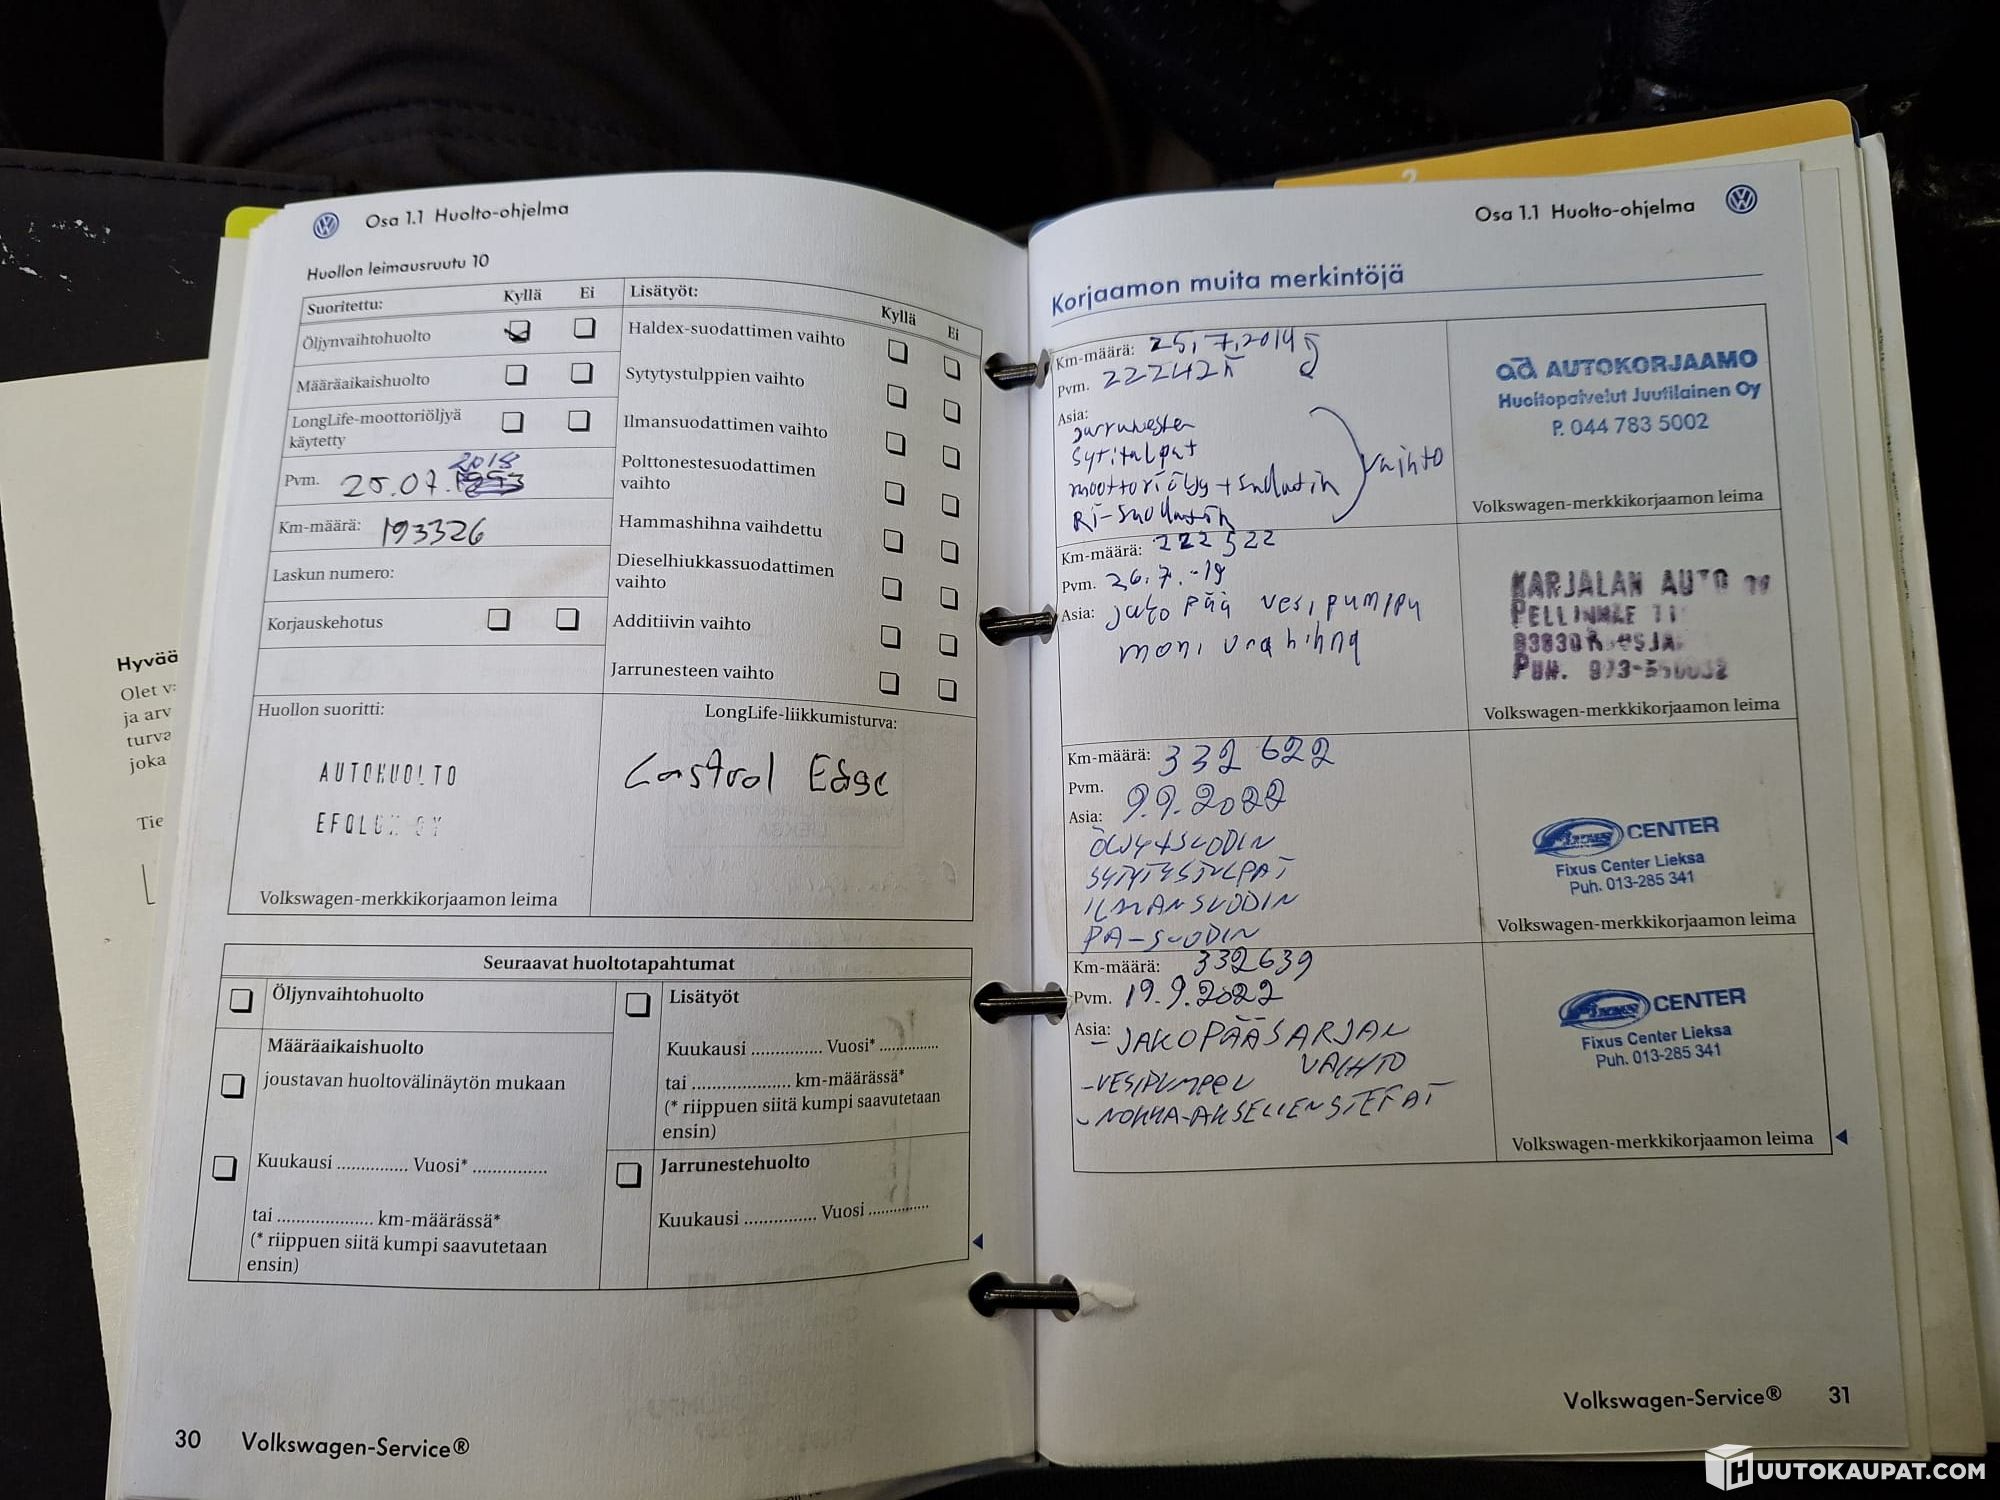 Hyvää
Olet v
ja arv
turva
joka
Tie
Osa 1.1 Huolto-ohjelma
Huollon leimausruutu 10
Suoritettu: Kyllä Ei
Öljynvaihtohuolto
Määräaikaishuolto
LongLife-moottoriöljyä
käytetty
2018
Pvm. 25.07.
Km-määrä: 193326
Laskun numero:
Korjauskehotus
Lisätyöt: Kyllä Ei
Haldex-suodattimen vaihto
Sytytystulppien vaihto
Ilmansuodattimen vaihto
Polttonestesuodattimen
vaihto
Hammashihna vaihdettu
Dieselhiukkassuodattimen
vaihto
Additiivin vaihto
Jarrunesteen vaihto
Huollon suoritti:
AUTOHUOLTO
Volkswagen-merkkikorjaamon leima
LongLife-liikkumisturva:
Castrol Edge
Seuraavat huoltotapahtumat
Öljynvaihtohuolto
Määräaikaishuolto
joustavan huoltovälinäytön mukaan
Kuukausi ............... Vuosi* ...............
tai .................... km-määrässä*
(* riippuen siitä kumpi saavutetaan
ensin)
Lisätyöt
Kuukausi ............... Vuosi* ............
tai .................... km-määrässä*
(* riippuen siitä kumpi saavutetaan
ensin)
Jarrunestehuolto
Kuukausi ............... Vuosi ............
30 Volkswagen-Service®
2
Osa 1.1 Huolto-ohjelma
Korjaamon muita merkintöjä
Km-määrä: 25.7.2019
Pvm.
Asia:
jarruneste
moottoriöljy + suodatin
vaihto
ad AUTOKORJAAMO
Huoltopalvelut Juutilainen Oy
P. 044 783 5002
Volkswagen-merkkikorjaamon leima
Km-määrä: 222 522
Pvm. 26.7.-19
Asia: jako pää vesipumppu
moni ura hihna
KARJALAN AUTO
Volkswagen-merkkikorjaamon leima
Km-määrä: 332 622
Pvm. 9.9.2022
Asia:
ÖLJY+SUODIN
SYTYTYSTULPAT
ILMANSUODIN
PA-SUODIN
FIXUS CENTER
Fixus Center Lieksa
Puh. 013-285 341
Volkswagen-merkkikorjaamon leima
Km-määrä: 332639
Pvm. 19.9.2022
Asia:
- JAKOPÄÄSARJAN
VAIHTO
-VESIPUMPPU
- NOKKA-AKSELIEN STEFAT
FIXUS CENTER
Fixus Center Lieksa
Puh. 013-285 341
Volkswagen-merkkikorjaamon leima
Volkswagen-Service® 31
HUUTOKAUPAT.COM